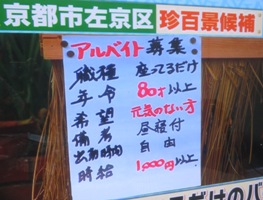 京都市左京区 珍百景候補
アルバイト募集
職種 座ってるだけ
年令 80才以上
希望 元気のない方
備考 昼寝付
出勤時間 自由
時給 1,000円以上
だけのバ